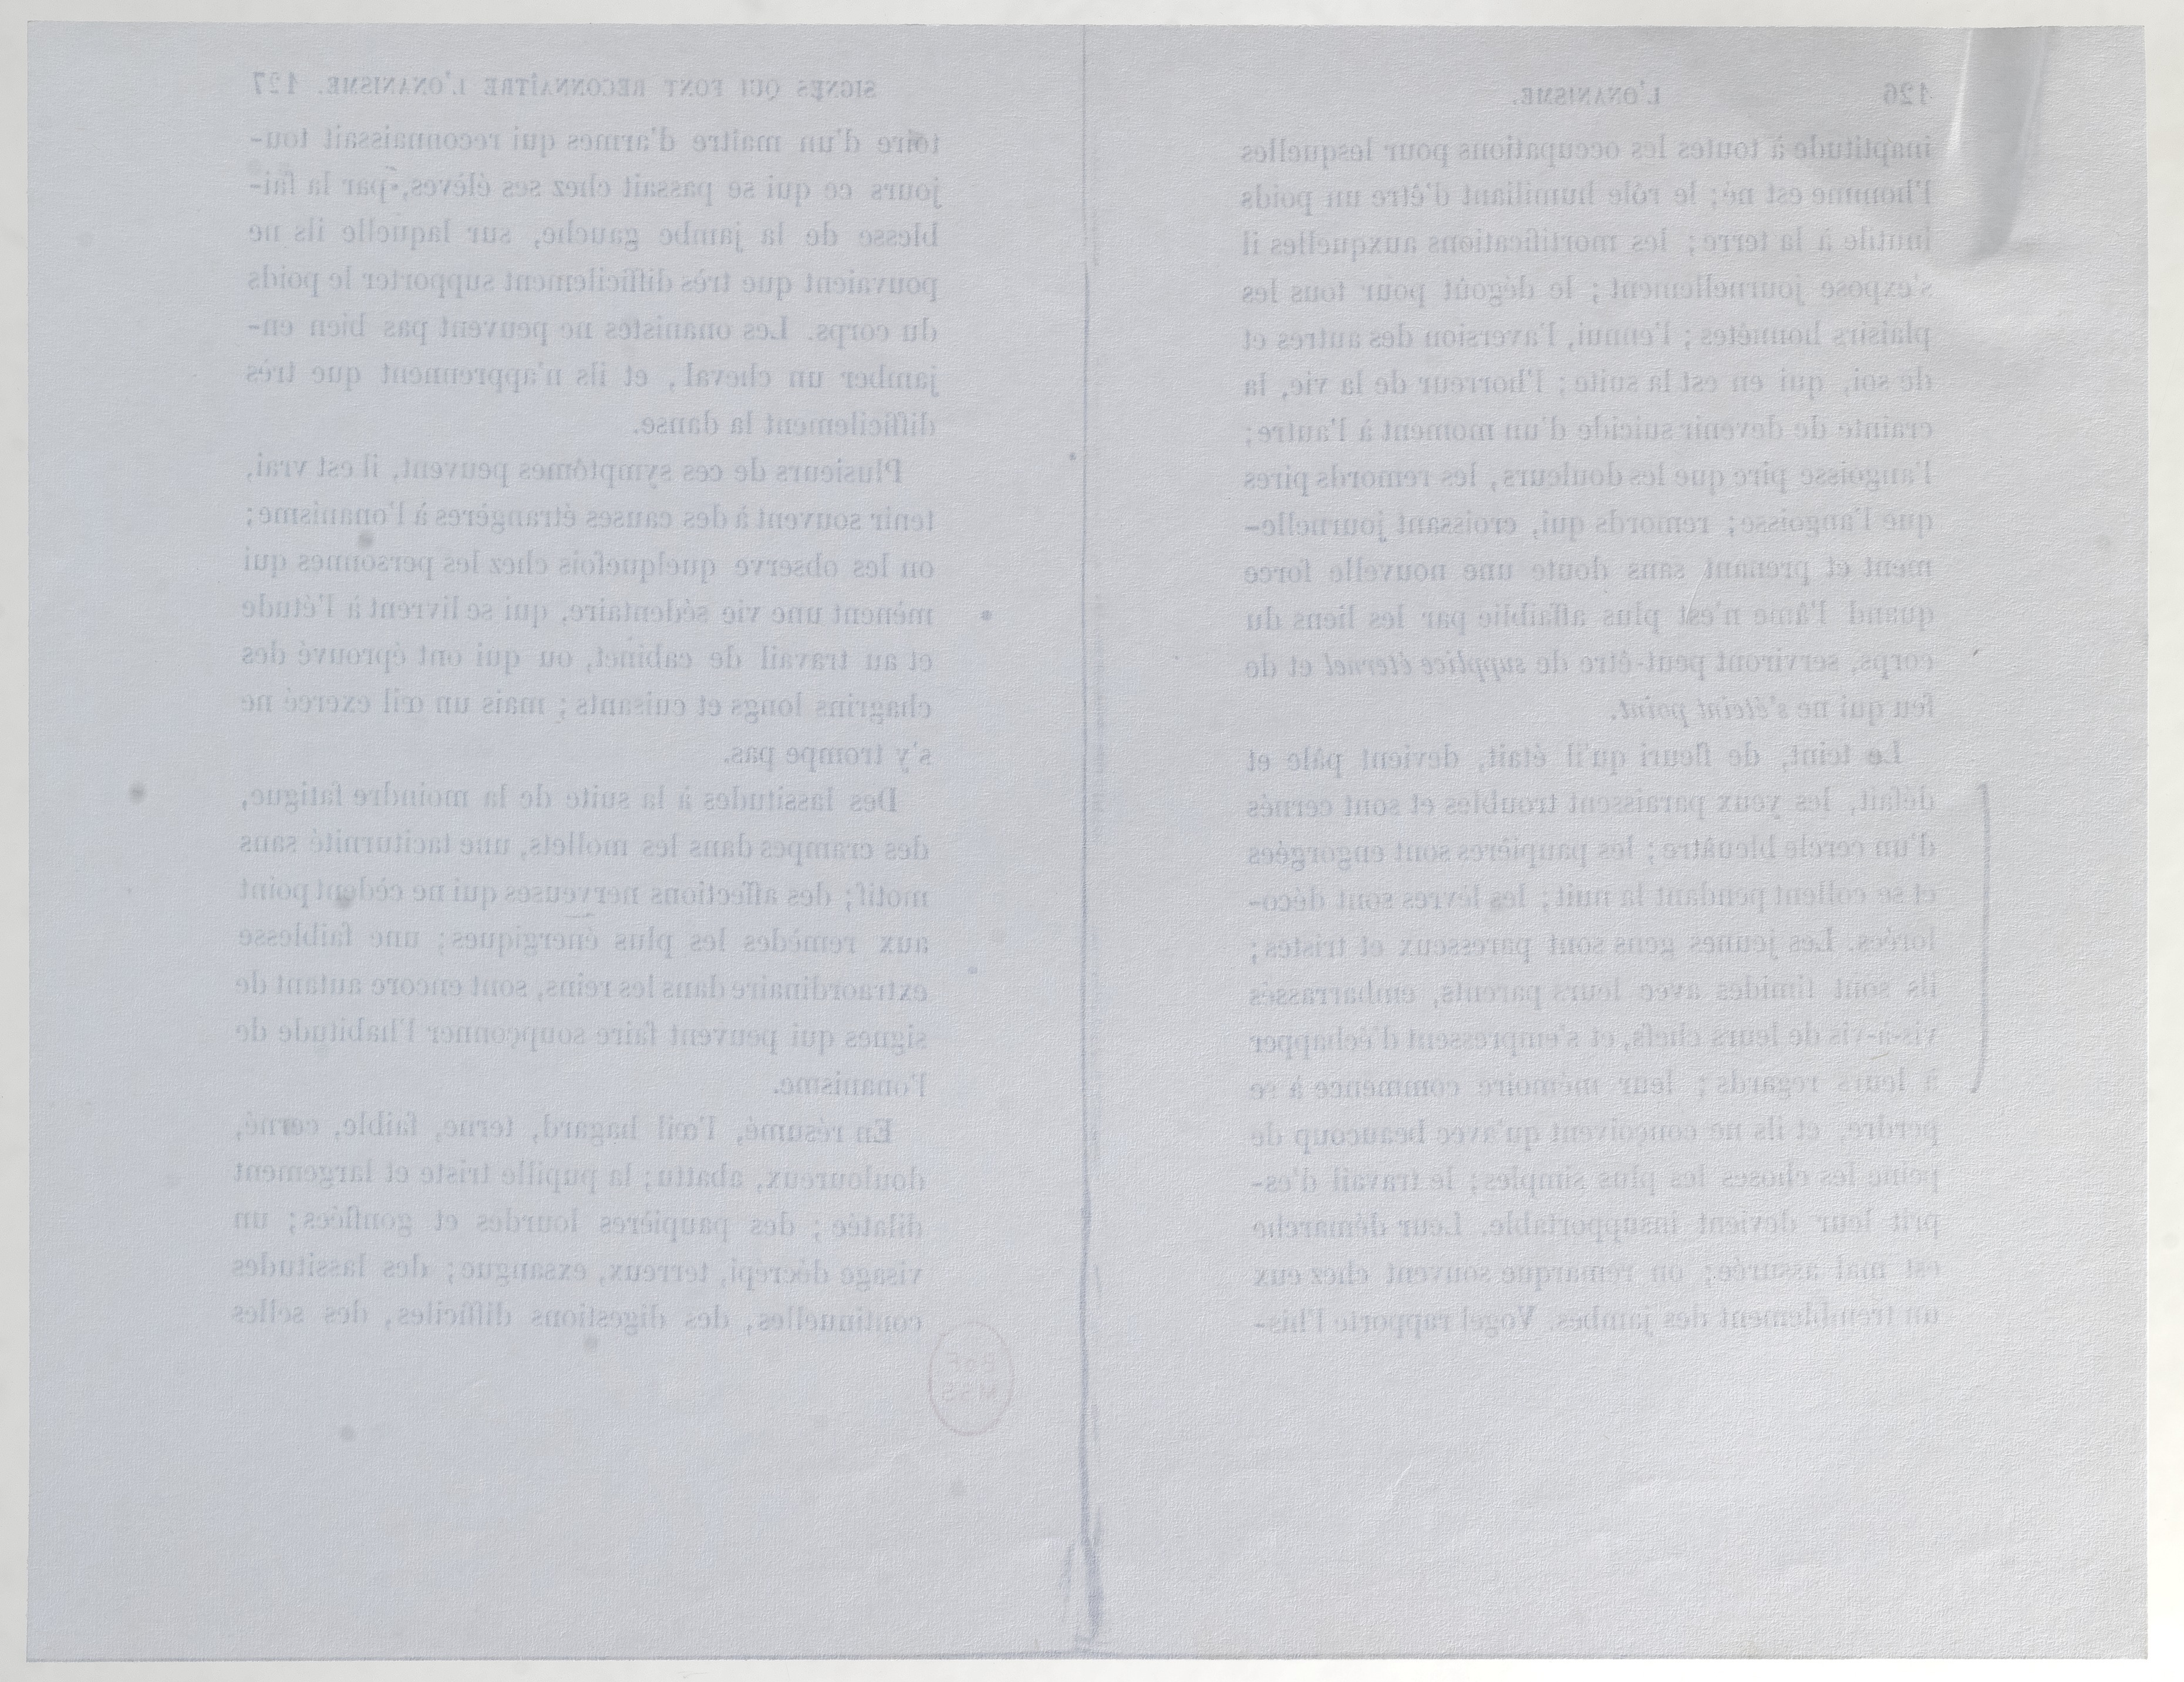 126 L'ONANISME.
inaptitude à toutes les occupations pour lesquelles
l'homme est né; le rôle humiliant d'être un poids
inutile à la terre; les mortifications auxquelles il
s'expose journellement; le dégoût pour tous les
plaisirs honnêtes; l'ennui, l'aversion des autres et
de soi, qui en est la suite; l'horreur de la vie, la
crainte de devenir suicide d'un moment à l'autre;
l'angoisse pire que les douleurs, les remords pires
que l'angoisse; remords qui, croissant journelle-
ment et prenant sans doute une nouvelle force
quand l'âme n'est plus affaiblie par les liens du
corps, serviront peut-être de supplice éternel et de
feu qui ne s'éteint point.
Le teint, de fleuri qu'il était, devient pâle et
défait, les yeux paraissent troubles et sont cernés
d'un cercle bleuâtre; les paupières sont engorgées
et se collent pendant la nuit; les lèvres sont déco-
lorées. Les jeunes gens sont paresseux et tristes;
ils sont timides avec leurs parents, embarrassés
vis-à-vis de leurs chefs, et s'empressent d'échapper
à leurs regards; leur mémoire commence à se
perdre, et ils ne conçoivent qu'avec beaucoup de
peine les choses les plus simples; le travail d'es-
prit leur devient insupportable. Leur démarche
est mal assurée; on remarque souvent chez eux
un tremblement des jambes. Vogel rapporte l'his-
SIGNES QUI FONT RECONNAÎTRE L'ONANISME. 127
toire d'un maître d'armes qui reconnaissait tou-
jours ce qui se passait chez ses élèves, par la fai-
blesse de la jambe gauche, sur laquelle ils ne
pouvaient que très difficilement supporter le poids
du corps. Les onanistes ne peuvent pas bien en-
jamber un cheval, et ils n'apprennent que très
difficilement la danse.
Plusieurs de ces symptômes peuvent, il est vrai,
tenir souvent à des causes étrangères à l'onanisme;
on les observe quelquefois chez les personnes qui
mènent une vie sédentaire, qui se livrent à l'étude
et au travail de cabinet, ou qui ont éprouvé des
chagrins longs et cuisants; mais un œil exercé ne
s'y trompe pas.
Des lassitudes à la suite de la moindre fatigue,
des crampes dans les mollets, une taciturnité sans
motif; des affections nerveuses qui ne cèdent point
aux remèdes les plus énergiques; une faiblesse
extraordinaire dans les reins, sont encore autant de
signes qui peuvent faire soupçonner l'habitude de
l'onanisme.
En résumé, l'œil hagard, terne, faible, cerné,
douloureux, abattu; la pupille triste et largement
dilatée; des paupières lourdes et gonflées; un
visage décrépi, terreux, exsangue; des lassitudes
continuelles, des digestions difficiles, des selles
BnF
MSS